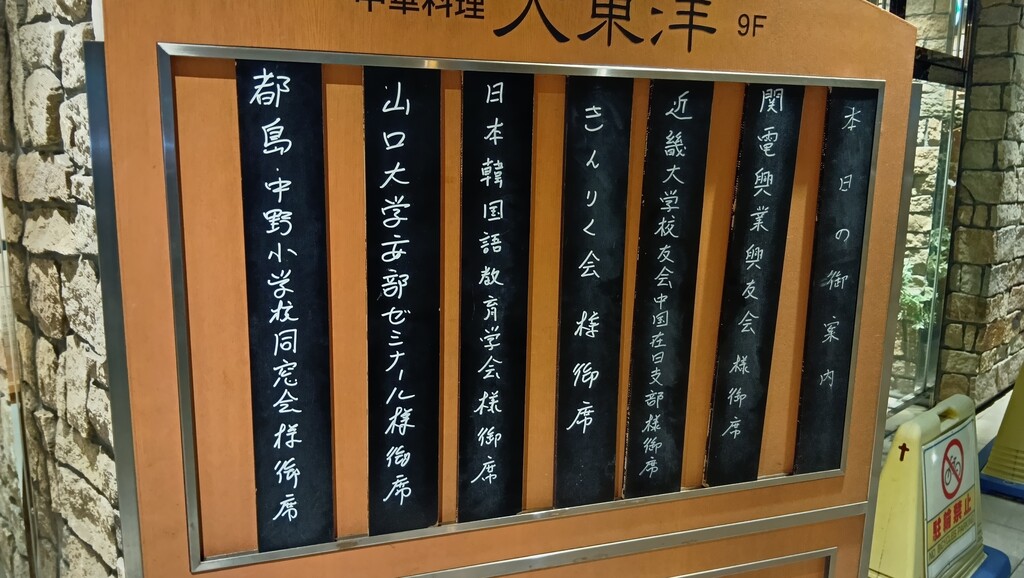 中華料理 大東洋 9F
本日の御案内
関電興業興友会様御席
近畿大学校友会中国在日支部様御席
きんりく会様御席
日本韓国語教育学会様御席
山口大学安部ゼミナール様御席
都島・中野小学校同窓会様御席
駐輪禁止